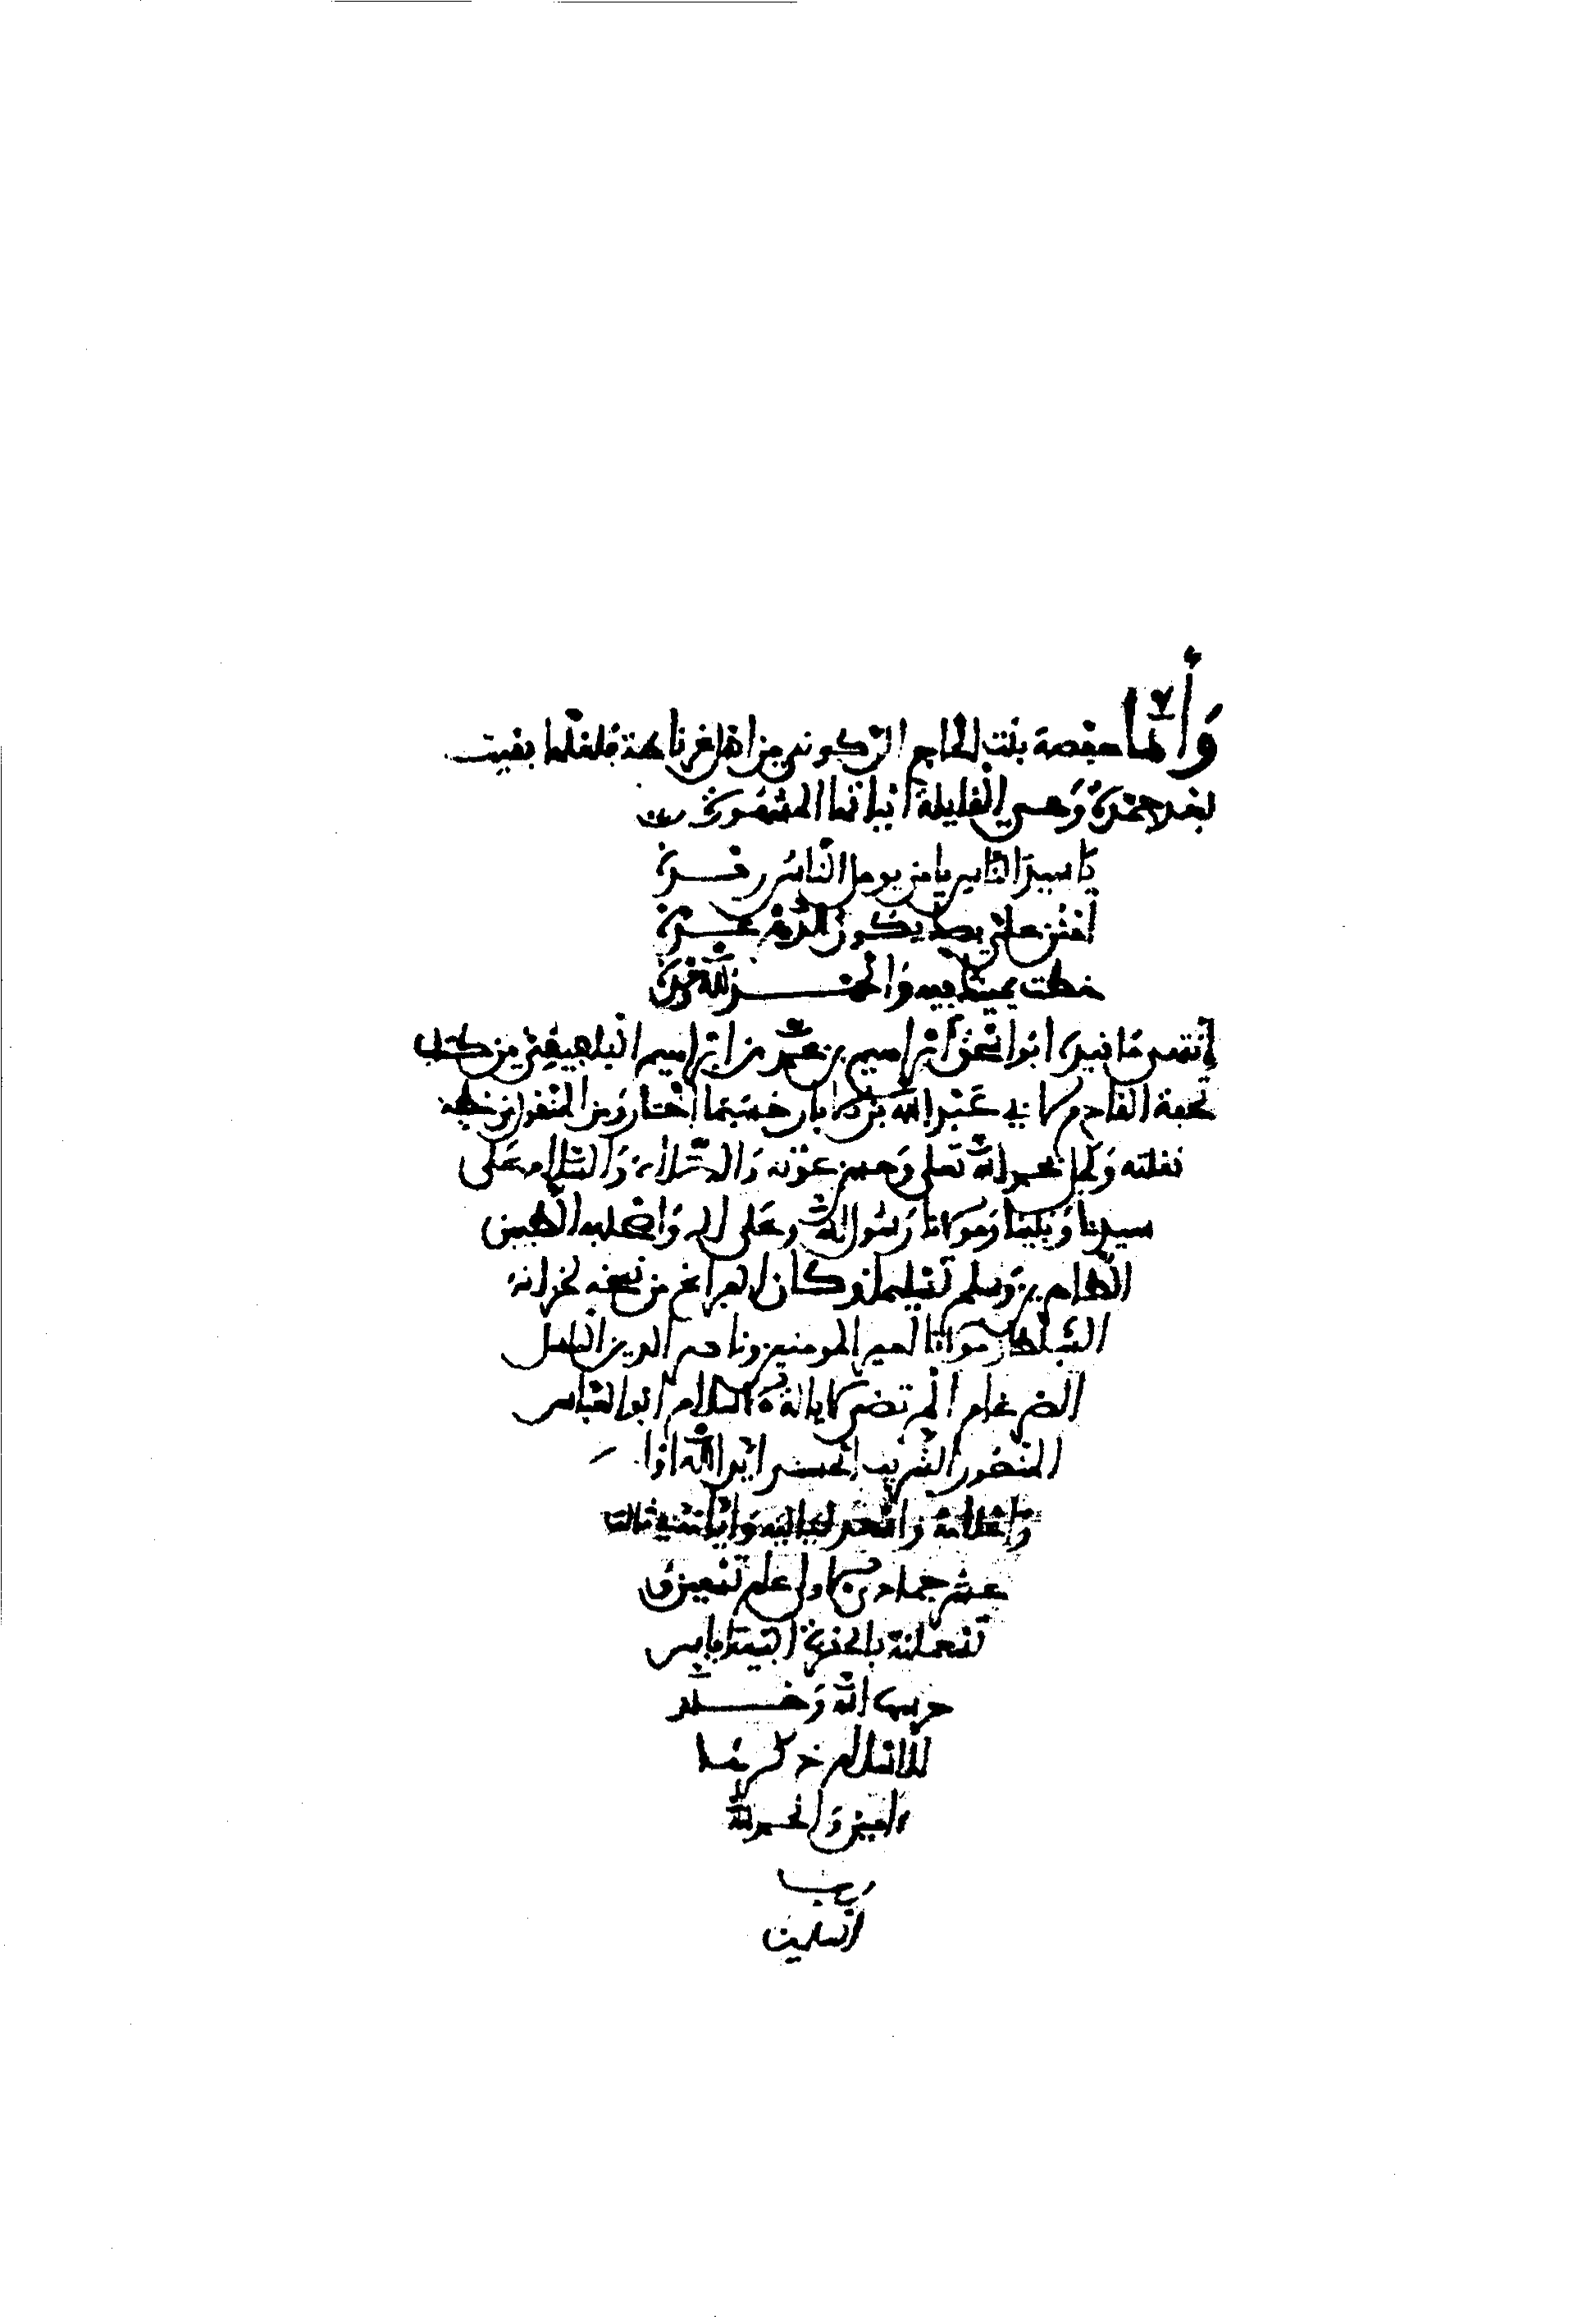 وأما حفصة بنت الحاج الركوني من أهل غرناطة فلعلها بقيت
بعد حمدة وهي القايلة أبياتها المشهورة
يا سيد الناس يا من يومل الناس رفده
امنن علي بصك يكون للدهر عده
خطت يمينك فيه والحمد لله وحده
إنتهى ما قيده أبو إسحق إبراهيم بن محمد بن إبراهيم البلفيقي من كتاب
تحفة القادم لابي عبد الله بن الابار حسبما اختار ومن المنقول من خطه
نقلته وكمل بحمد الله تعلى وحسن عونه والصلاة والسلام على
سيدنا ونبينا ومولانا رسول الله وعلى اله وأصحابه الطيبين
الطاهرين وسلم تسليما وكان الفراغ من نسخه لخزانة
السلطان مولانا أمير المومنين وناصر الدين الباسل
الضرغام المرتضى لإيالة الاسلام أبو العباس
المنصور الشريف الحسني أيد الله
وأعلامه وأسعد لياليه وأيامه في ثالث
عشر جمادى الاولى عام تسعين و
تسعمائة بالحضرة
حرسها الله وخلد
للاسلام ذكرها
ءامين والحمد لله
رب
العلمين